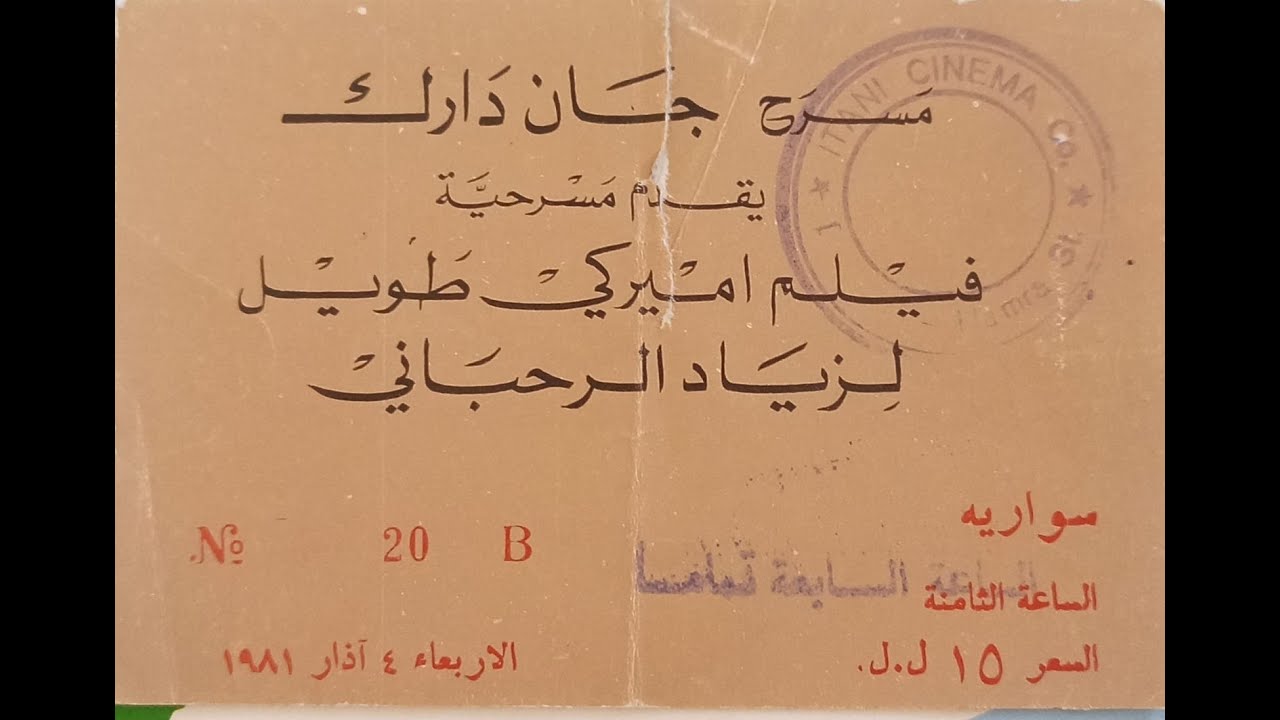 مَسرَح جَان دَارك
يقدم مَسْرحيَّة
فيْلم اميْركيْ طَويْل
لِزيَاد الرحبَانيْ
ITANI CINEMA Co.
سواريه
Nº 20 B
الساعة السابعة تماما
الساعة الثامنة
السعر ١٥ ل.ل.
الاربعاء ٤ آذار ١٩٨١